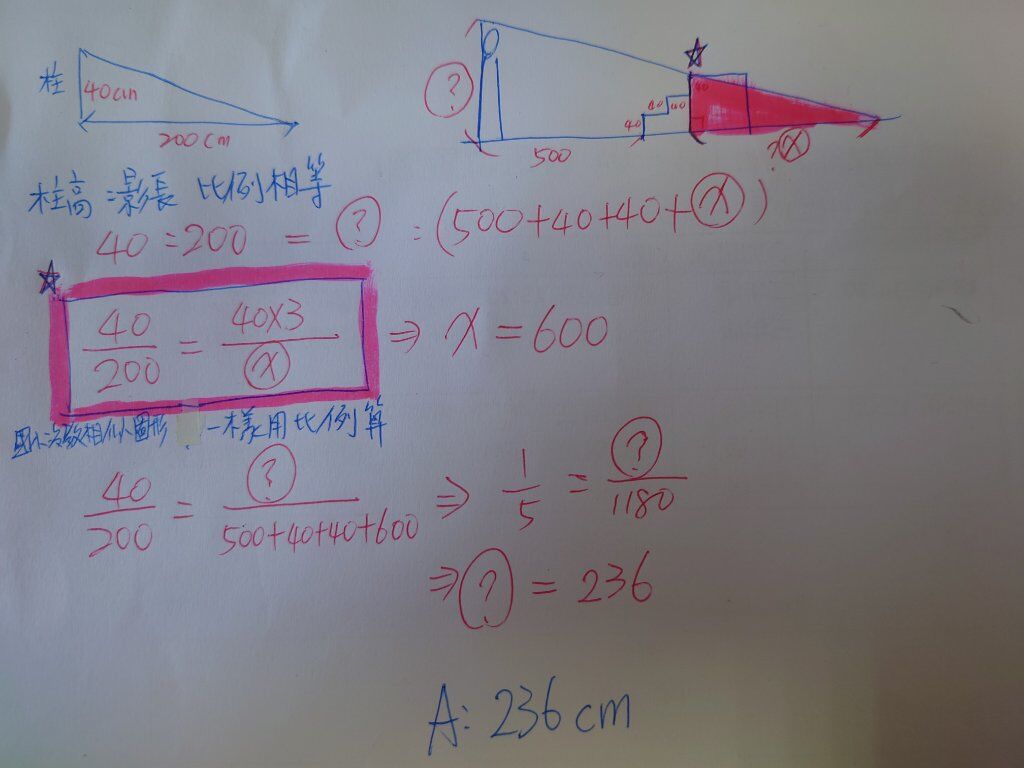 柱
40cm
200cm
?
☆
40
40
40
40
500
x
柱高:影長 比例相等
40:200 = ? : (500+40+40+x)
☆
40/200 = 40×3/x ⇒ x = 600
相似圖形 一樣用比例算
40/200 = ?/500+40+40+600 ⇒ 1/5 = ?/1180
⇒ ? = 236
A: 236 cm